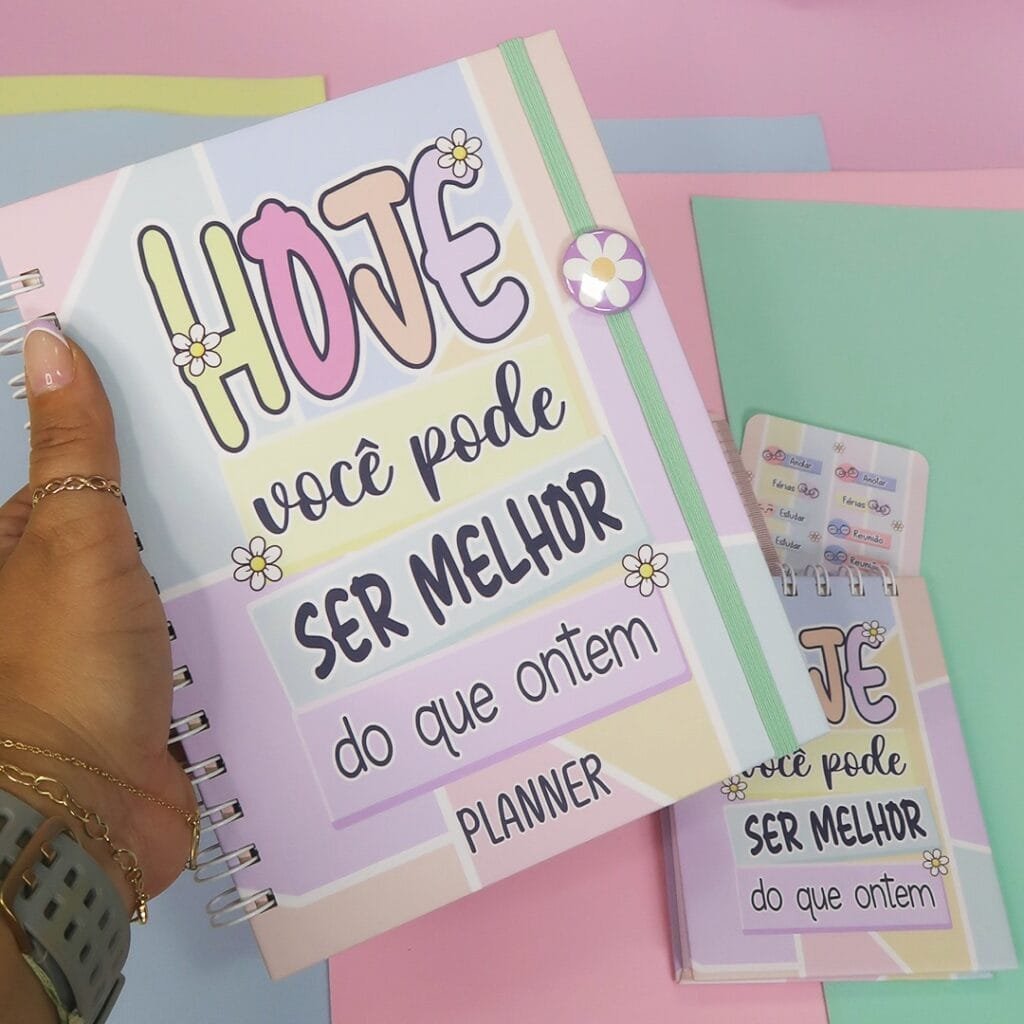 HOJE
você pode
SER MELHOR
do que ontem
PLANNER
Anotar
Anotar
Férias
Férias
Estudar
Reunião
Estudar
Reunião
JE
você pode
SER MELHOR
do que ontem